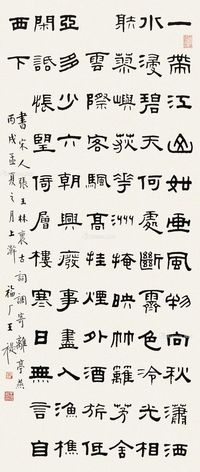 一帶江山如畫風物向秋瀟洒
水浸碧天何處斷霽色冷光相
射蓼嶼荻花洲掩映竹籬茅舍
雲際客颿高挂煙外酒旂低
亞多少六朝興廢事盡入漁樵
閒話悵望倚層樓寒日無言自
西下
書宋人張古詞調寄離亭燕
丙戌孟夏之月上澣 福厂王禔